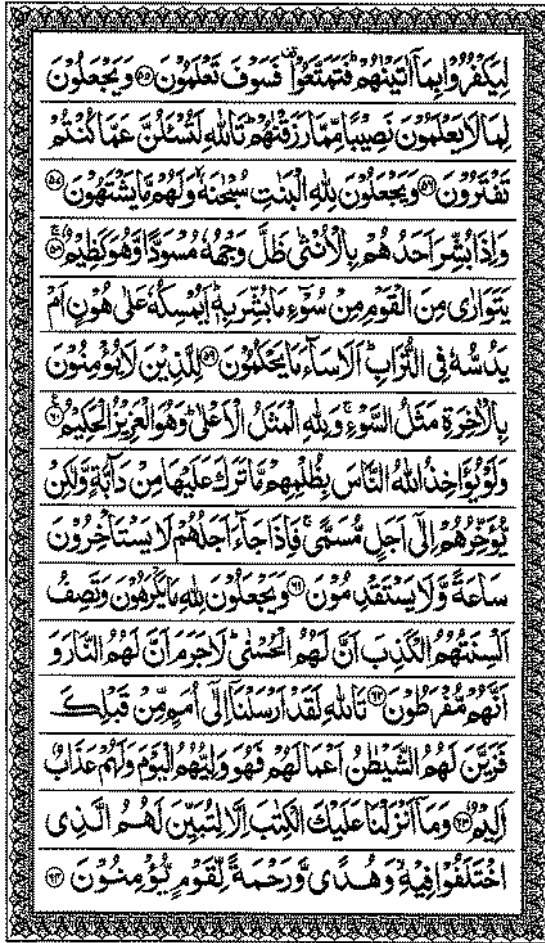 لِيَكْفُرُوْا بِمَاۤ اٰتَيْنٰهُمْ ؕ فَتَمَتَّعُوْا ۫ فَسَوْفَ تَعْلَمُوْنَ ﴿۵۵﴾ وَيَجْعَلُوْنَ
لِمَا لَا يَعْلَمُوْنَ نَصِيْبًا مِّمَّا رَزَقْنٰهُمْ ؕ تَاللّٰهِ لَتُسْـَٔلُنَّ عَمَّا كُنْتُمْ
تَفْتَرُوْنَ ﴿۵۶﴾ وَيَجْعَلُوْنَ لِلّٰهِ الْبَنٰتِ سُبْحٰنَهٗ ۙ وَلَهُمْ مَّا يَشْتَهُوْنَ ﴿۵۷﴾
وَاِذَا بُشِّرَ اَحَدُهُمْ بِالْاُنْثٰى ظَلَّ وَجْهُهٗ مُسْوَدًّا وَّهُوَ كَظِيْمٌ ﴿۵۸﴾
يَتَوَارٰى مِنَ الْقَوْمِ مِنْ سُوْٓءِ مَا بُشِّرَ بِهٖ ؕ اَيُمْسِكُهٗ عَلٰى هُوْنٍ اَمْ
يَدُسُّهٗ فِى التُّرَابِ ؕ اَلَا سَآءَ مَا يَحْكُمُوْنَ ﴿۵۹﴾ لِلَّذِيْنَ لَا يُؤْمِنُوْنَ
بِالْاٰخِرَةِ مَثَلُ السَّوْءِ ۚ وَلِلّٰهِ الْمَثَلُ الْاَعْلٰى ؕ وَهُوَ الْعَزِيْزُ الْحَكِيْمُ ﴿۶۰﴾
وَلَوْ يُؤَاخِذُ اللّٰهُ النَّاسَ بِظُلْمِهِمْ مَّا تَرَكَ عَلَيْهَا مِنْ دَآبَّةٍ وَّلٰكِنْ
يُّؤَخِّرُهُمْ اِلٰٓى اَجَلٍ مُّسَمًّى ۚ فَاِذَا جَآءَ اَجَلُهُمْ لَا يَسْتَاْخِرُوْنَ
سَاعَةً وَّلَا يَسْتَقْدِمُوْنَ ﴿۶۱﴾ وَيَجْعَلُوْنَ لِلّٰهِ مَا يَكْرَهُوْنَ وَتَصِفُ
اَلْسِنَتُهُمُ الْكَذِبَ اَنَّ لَهُمُ الْحُسْنٰى ؕ لَا جَرَمَ اَنَّ لَهُمُ النَّارَ وَ
اَنَّهُمْ مُّفْرَطُوْنَ ﴿۶۲﴾ تَاللّٰهِ لَقَدْ اَرْسَلْنَاۤ اِلٰٓى اُمَمٍ مِّنْ قَبْلِكَ
فَزَيَّنَ لَهُمُ الشَّيْطٰنُ اَعْمَالَهُمْ فَهُوَ وَلِيُّهُمُ الْيَوْمَ وَلَهُمْ عَذَابٌ
اَلِيْمٌ ﴿۶۳﴾ وَمَاۤ اَنْزَلْنَا عَلَيْكَ الْكِتٰبَ اِلَّا لِتُبَيِّنَ لَهُمُ الَّذِى
اخْتَلَفُوْا فِيْهِ ۙ وَهُدًى وَّرَحْمَةً لِّقَوْمٍ يُّؤْمِنُوْنَ ﴿۶۴﴾